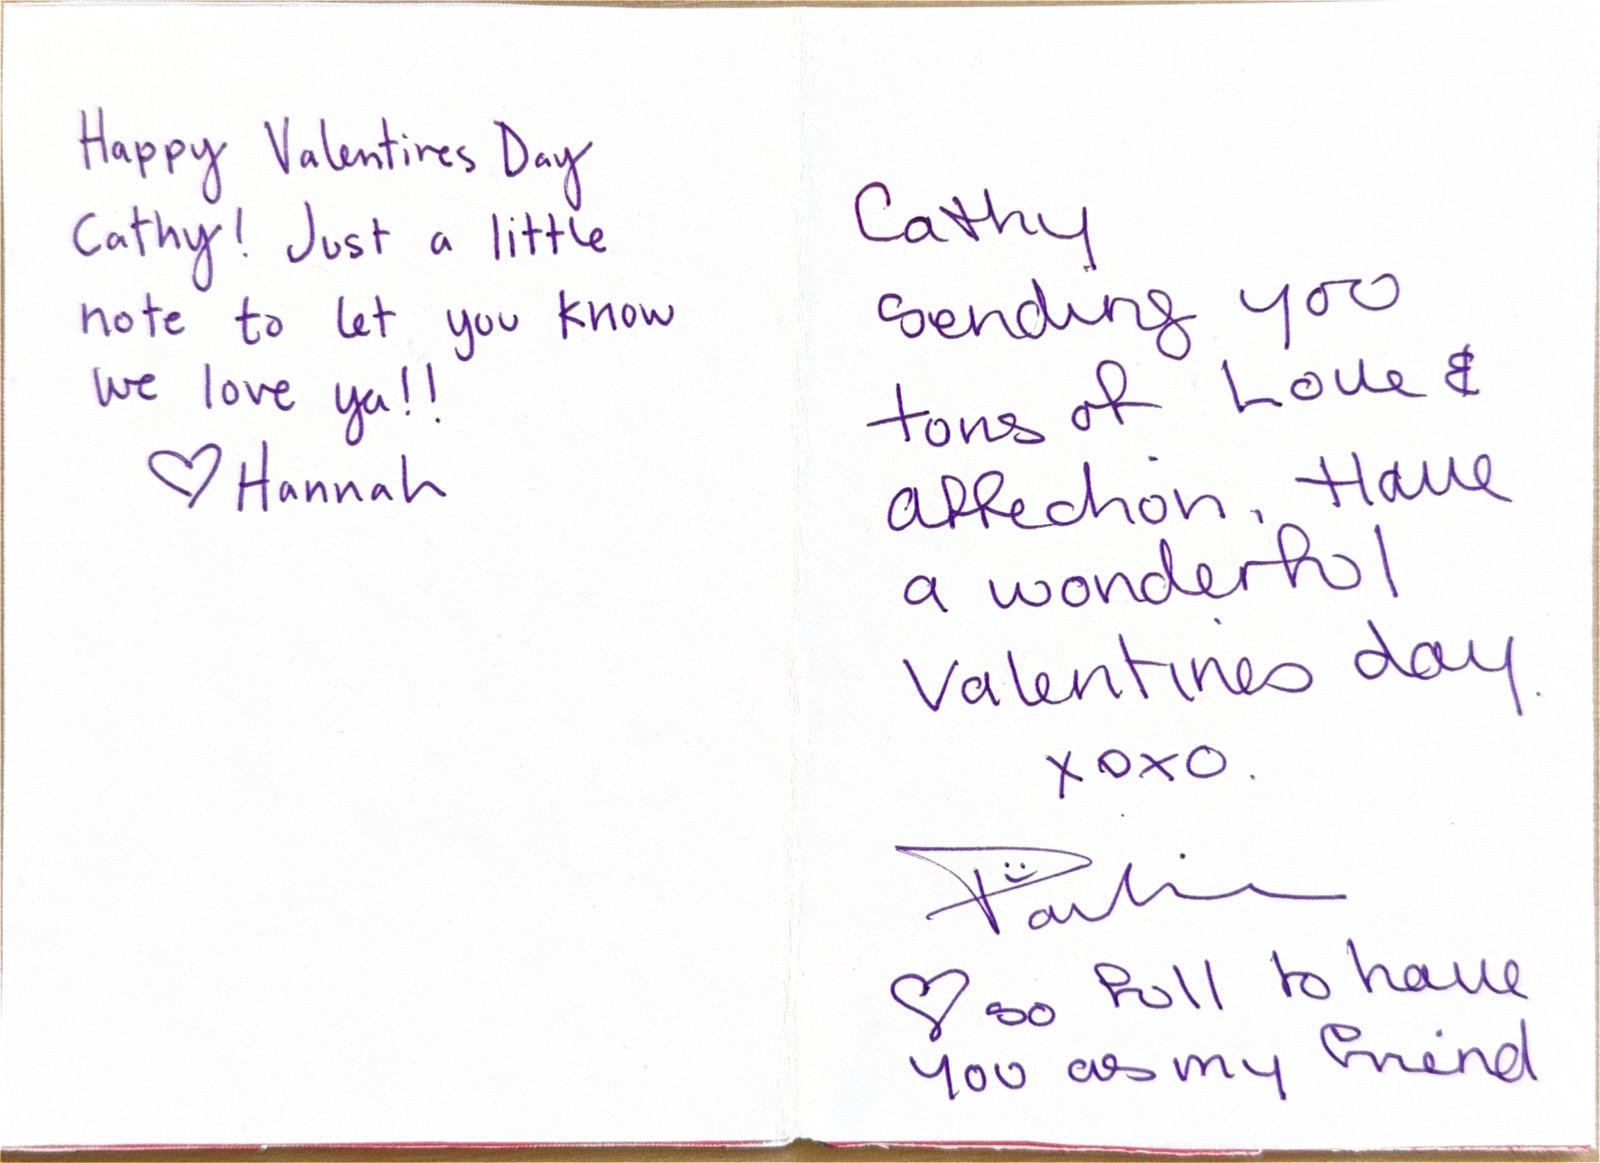 Happy Valentines Day
Cathy! Just a little
note to let you know
we love ya!!
♡ Hannah
Cathy
sending you
tons of Love &
affection. Have
a wonderful
Valentines day.
xoxo.
♡ so full to have
you as my friend